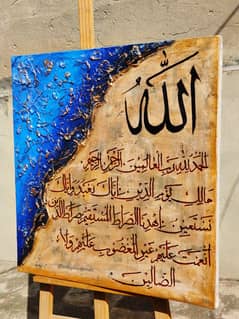 الله
الحمد لله رب العالمين الرحمن الرحيم
مالك يوم الدين إياك نعبد وإياك
نستعين اهدنا الصراط المستقيم صراط الذين
أنعمت عليهم غير المغضوب عليهم ولا
الضالين